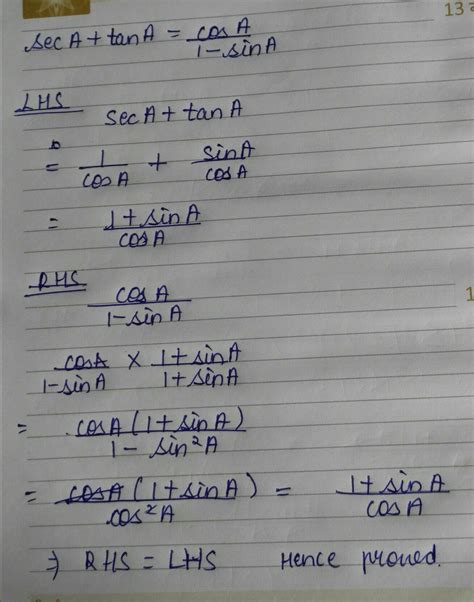 13
secA + tanA = cosA / 1 - sinA
LHS
secA + tanA
= 1 / cosA + sinA / cosA
= 1 + sinA / cosA
RHS
cosA / 1 - sinA
1
cosA / 1 - sinA × 1 + sinA / 1 + sinA
= cosA (1 + sinA) / 1 - sin²A
= cosA (1 + sinA) / cos²A = 1 + sinA / cosA
⇒ RHS = LHS Hence proved.